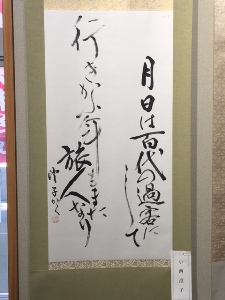 月日は百代の過客に
して
行きかふ年もまた
旅人なり